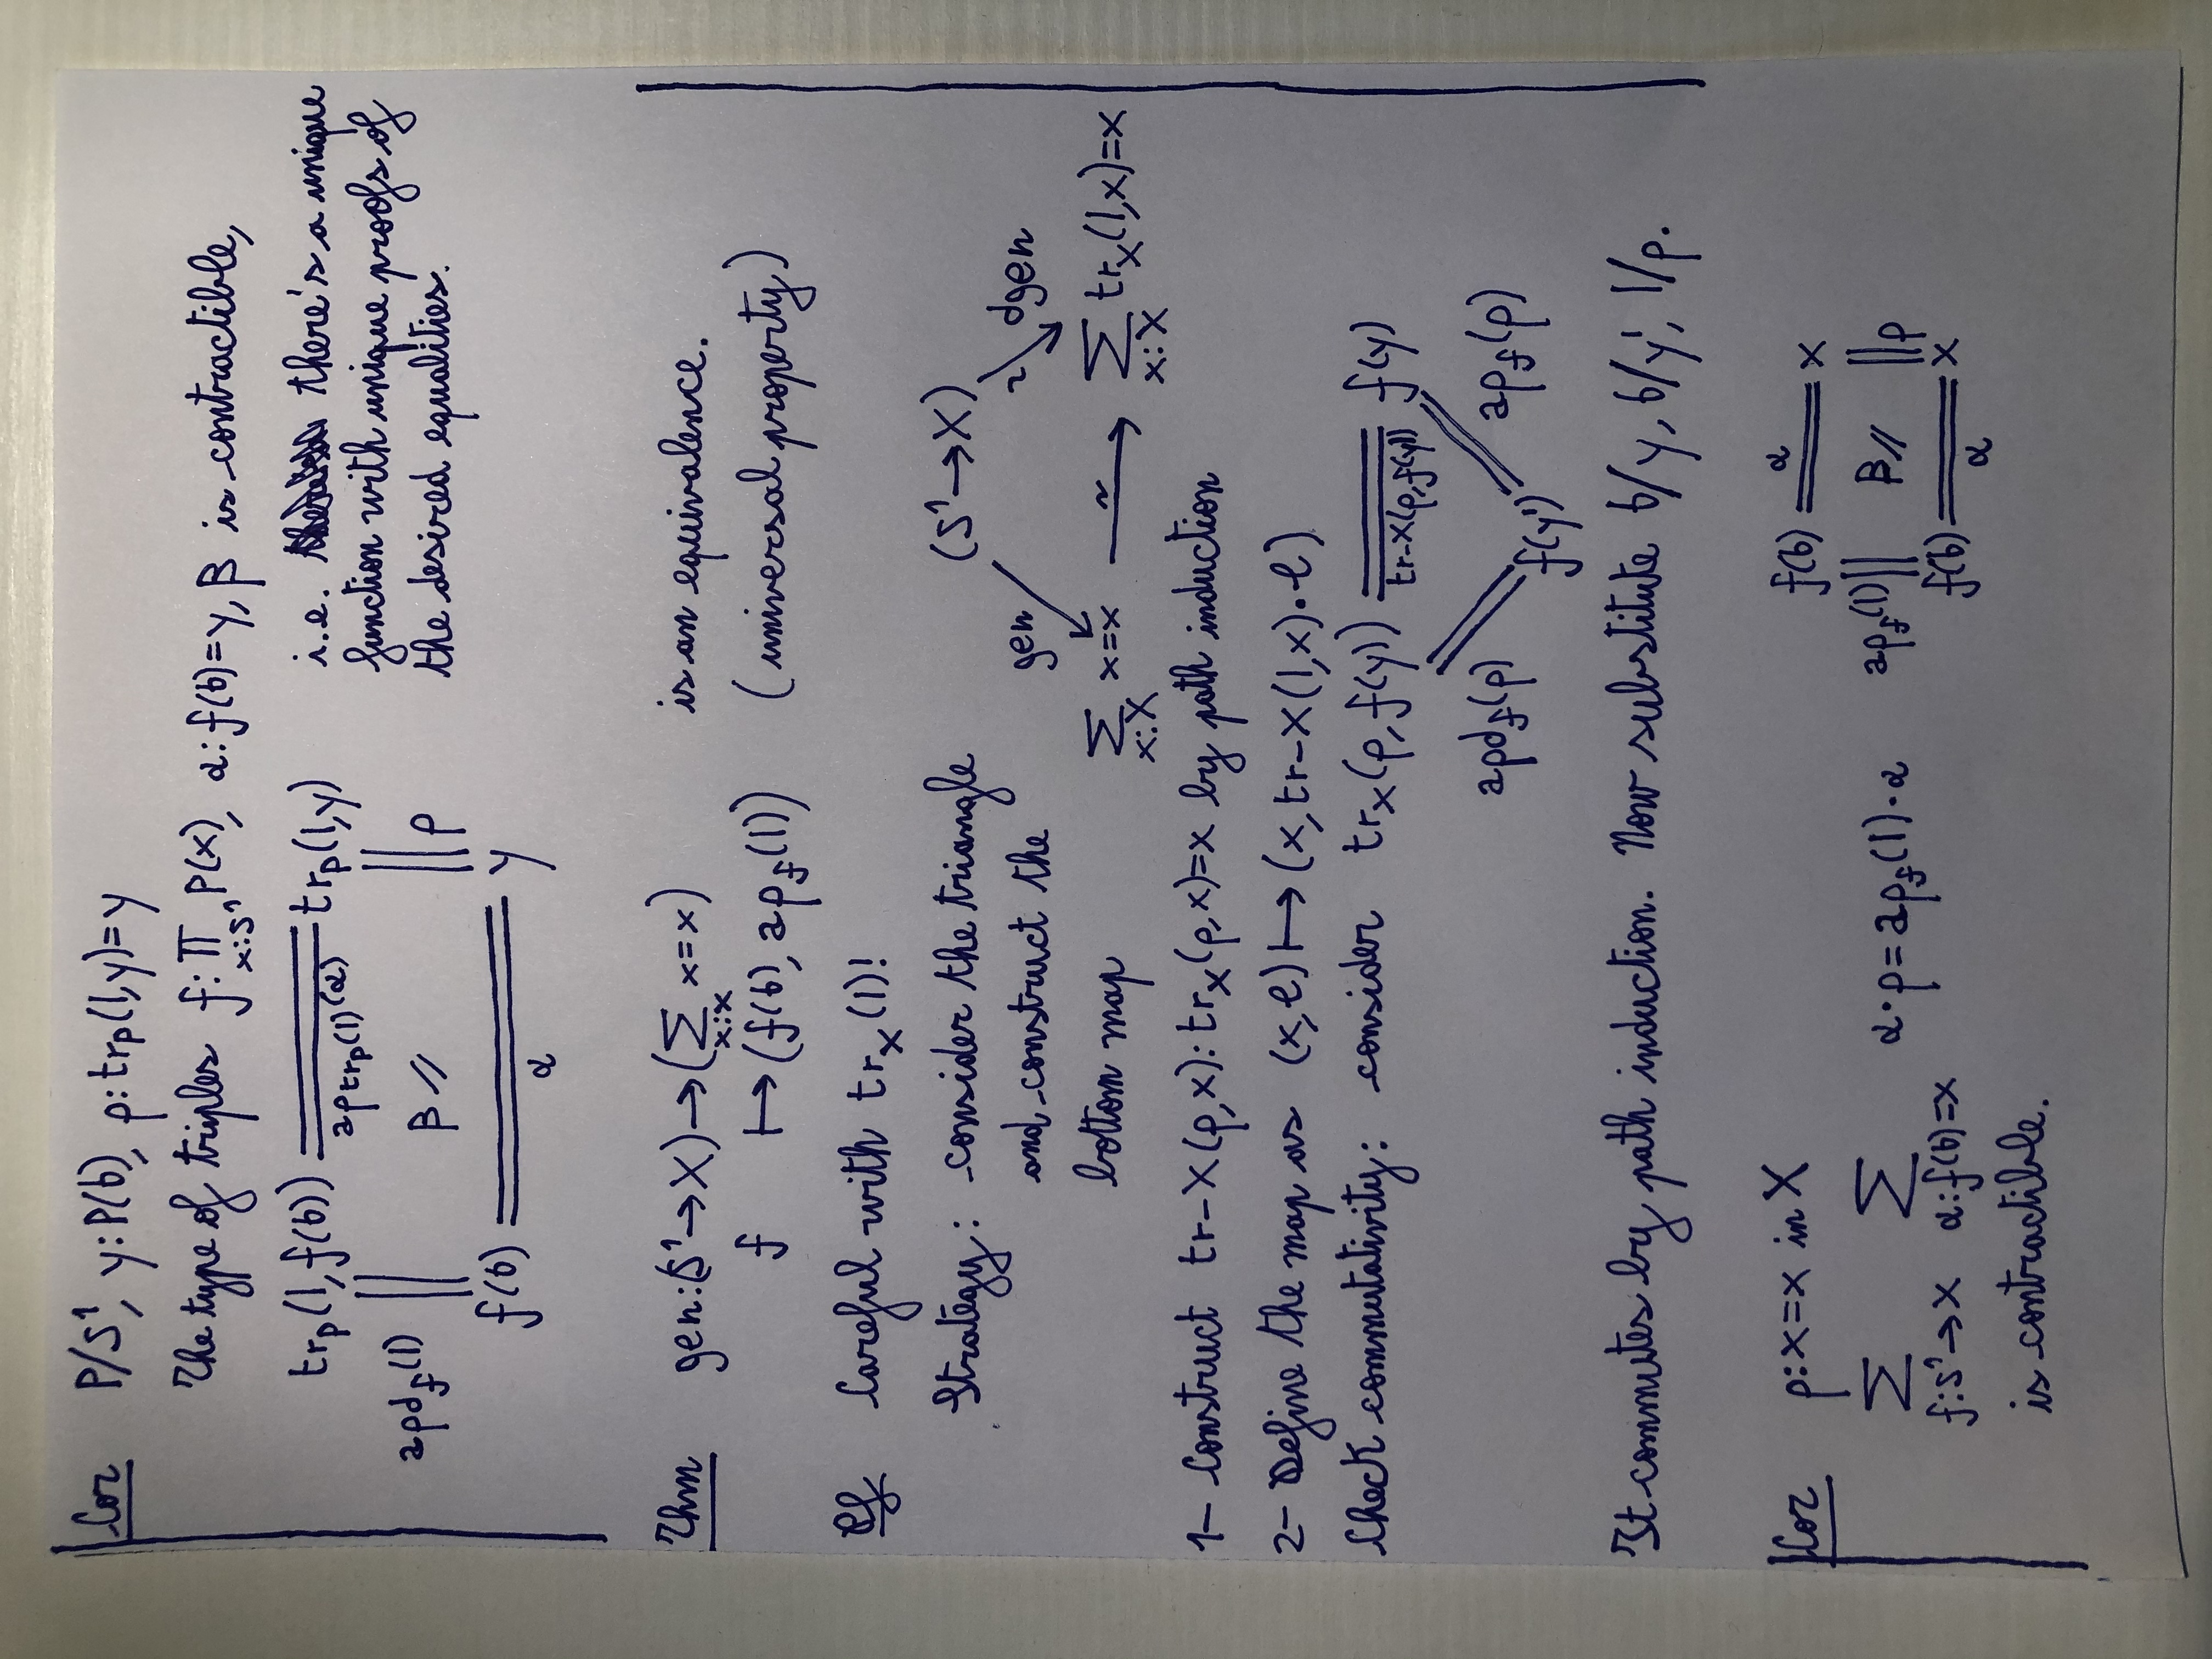 Cor P/S¹, y:P(b), p:tr_P(l,y)=y
The type of triples f:∏_{x:S¹} P(x), α:f(b)=y, β is contractible,
tr_P(l,f(b)) ═ ap_{tr_P(l)}(α) ═ tr_P(l,y)
apd_f(l) ‖ β⫽ ‖ p
f(b) ═ α ═ y
i.e. there's a unique
function with unique proofs of
the desired equalities.
Thm gen:(S¹→X)→(∑_{x:X} x=x) is an equivalence.
f ↦ (f(b), ap_f(l)) (universal property)
Pf Careful with tr_X(l)!
Strategy: consider the triangle
and construct the
bottom map
(S¹→X)
gen ~ dgen
∑_{x:X} x=x ~→ ∑_{x:X} tr_X(l,x)=x
1- Construct tr-X(p,x):tr_X(p,x)=x by path induction
2- Define the map as (x,l)↦(x,tr-X(l,x)·l)
Check commutativity: consider tr_X(p,f(y)) ═ tr-X(p,f(y)) ═ f(y)
apd_f(p) ap_f(p)
f(y')
It commutes by path induction. Now substitute b/y, b/y', l/p.
Cor p:x=x in X
∑_{f:S¹→X} ∑_{α:f(b)=x} α·p=ap_f(l)·α
is contractible.
f(b) ═ α ═ x
ap_f(l) ‖ β⫽ ‖ p
f(b) ═ α ═ x